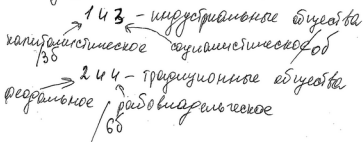 1 и 3 - индустриальные общества
капиталистическое социалистическое об
/3б
2 и 4 - традиционные общества
феодальное рабовладельческое
/6б